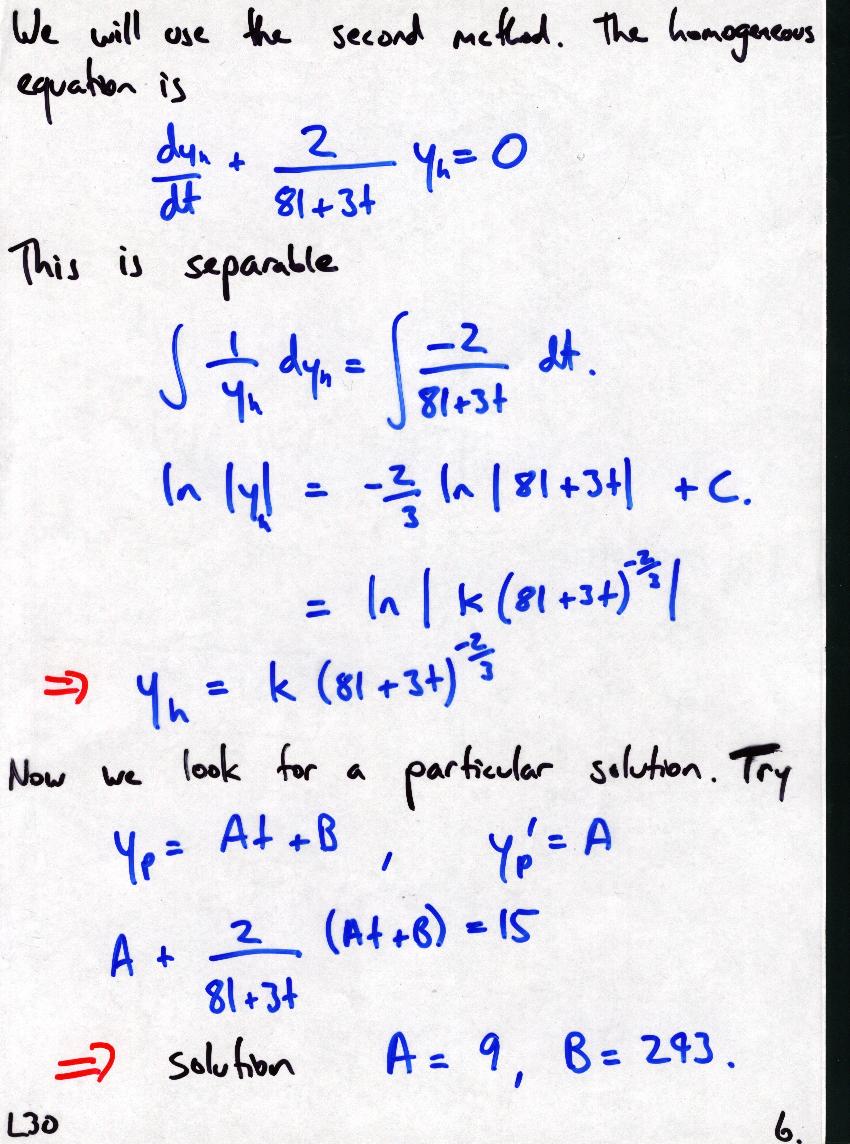 We will use the second method. The homogeneous
equation is
dyₕ/dt + 2/(81+3t) yₕ = 0
This is separable
∫ 1/yₕ dyₕ = ∫ -2/(81+3t) dt.
ln |yₕ| = -2/3 ln |81+3t| + C.
= ln | k (81+3t)^(-2/3) |
⇒ yₕ = k (81+3t)^(-2/3)
Now we look for a particular solution. Try
yₚ = At + B , yₚ' = A
A + 2/(81+3t) (At+B) = 15
⇒ solution A = 9, B = 243.
L30 6.